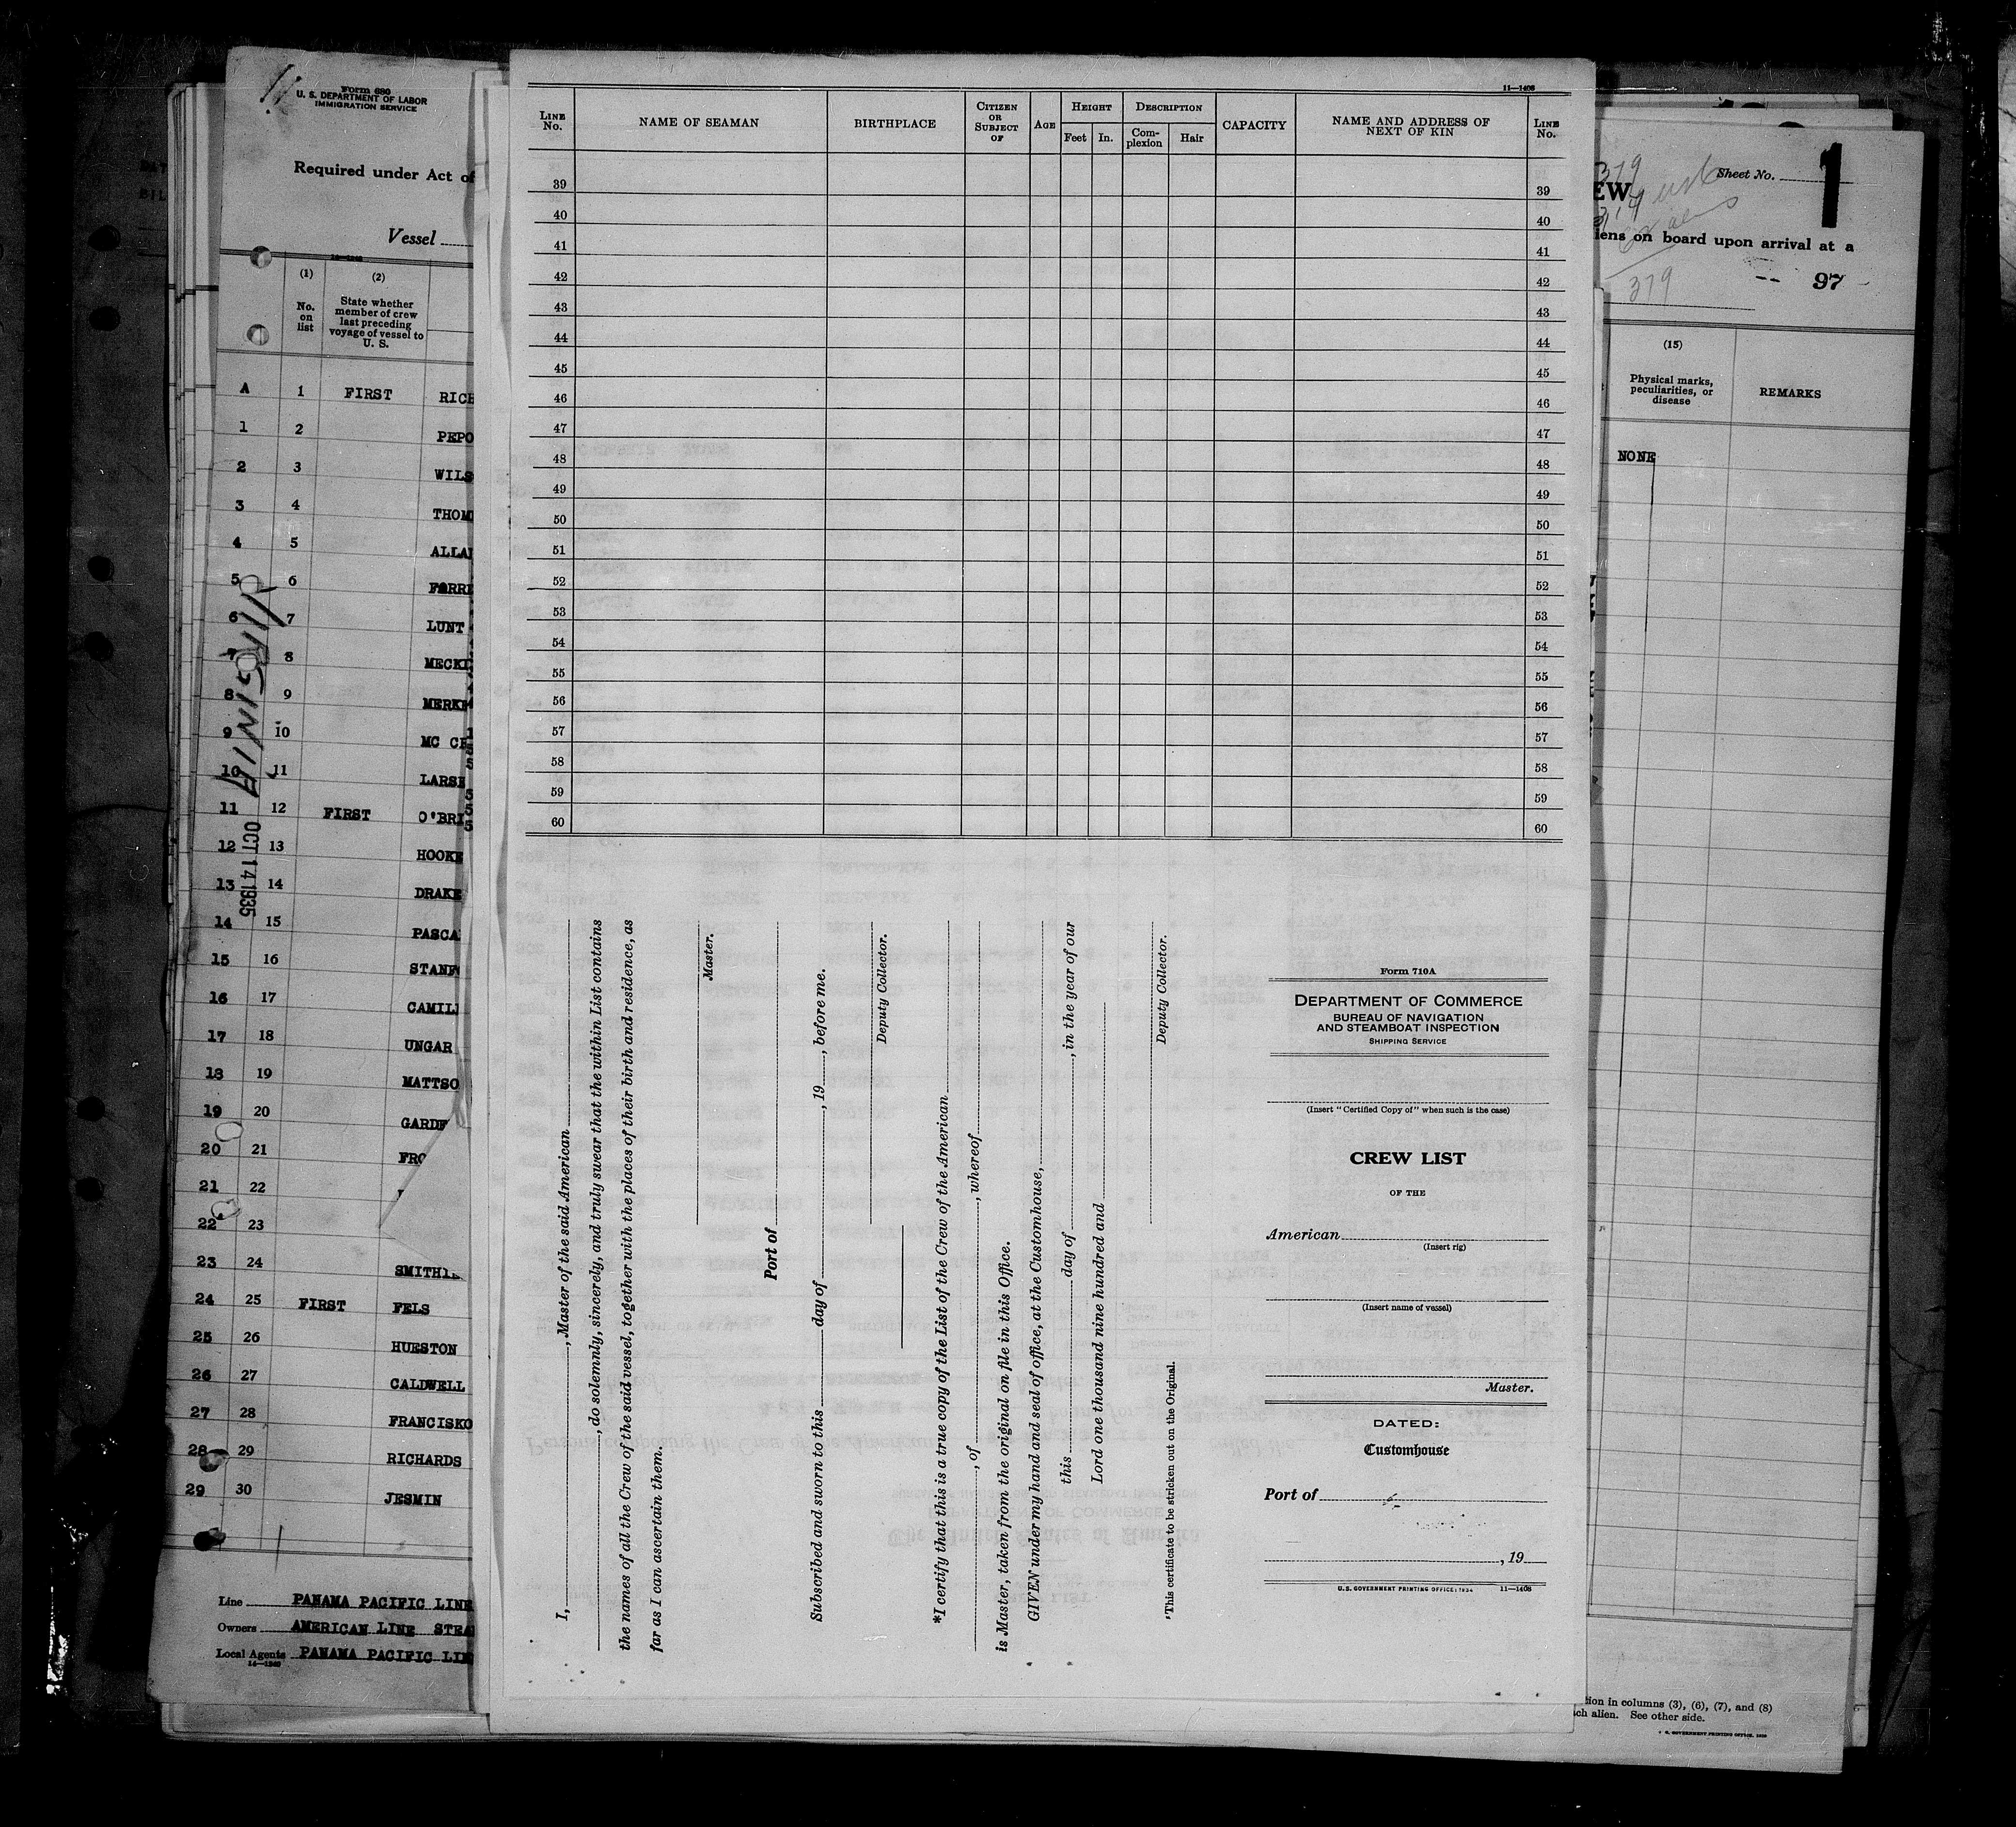 Form 680
U. S. DEPARTMENT OF LABOR
IMMIGRATION SERVICE
Required under Act of
Vessel
14—1240
(1)
No.
on
list
(2)
State whether
member of crew
last preceding
voyage of vessel to
U. S.
A 1 FIRST RICH
1 2 PEPO
2 3 WILS
3 4 THOM
4 5 ALLA
5 6 FORRE
6 7 LUNT
7 8 MECKI
8 9 MERKE
9 10 MC CR
10 11 LARSE
11 12 FIRST O'BRI
12 13 HOOKE
13 14 DRAKE
14 15 PASCA
15 16 STANF
16 17 CAMILL
17 18 UNGAR
18 19 MATTSO
19 20 GARDE
20 21 FRO
21 22
22 23
23 24 SMITH
24 25 FIRST FELS
25 26 HUESTON
26 27 CALDWELL
27 28 FRANCISKO
28 29 RICHARDS
29 30 JESMIN
VIRGINIA
OCT 14 1935
Line PANAMA PACIFIC LINE
Owners AMERICAN LINE STEA
Local Agents PANAMA PACIFIC LIN
14—1240
11—1408
LINE No. NAME OF SEAMAN BIRTHPLACE CITIZEN OR SUBJECT OF AGE HEIGHT Feet In. DESCRIPTION Complexion Hair CAPACITY NAME AND ADDRESS OF NEXT OF KIN LINE No.
39 39
40 40
41 41
42 42
43 43
44 44
45 45
46 46
47 47
48 48
49 49
50 50
51 51
52 52
53 53
54 54
55 55
56 56
57 57
58 58
59 59
60 60
I, , Master of the said American
, do solemnly, sincerely, and truly swear that the within List contains
the names of all the Crew of the said vessel, together with the places of their birth and residence, as
far as I can ascertain them.
Master.
Port of
Subscribed and sworn to this day of , 19 , before me.
Deputy Collector.
*I certify that this is a true copy of the List of the Crew of the American
, of , whereof
is Master, taken from the original on file in this Office.
GIVEN under my hand and seal of office, at the Customhouse,
this day of , in the year of our
Lord one thousand nine hundred and
Deputy Collector.
*This certificate to be stricken out on the Original.
Form 710A
DEPARTMENT OF COMMERCE
BUREAU OF NAVIGATION
AND STEAMBOAT INSPECTION
SHIPPING SERVICE
(Insert "Certified Copy of" when such is the case)
CREW LIST
OF THE
American
(Insert rig)
(Insert name of vessel)
Master.
DATED:
Customhouse
Port of
, 19
U.S. GOVERNMENT PRINTING OFFICE: 1934 11—1408
EW
Sheet No. 1
379
iens on board upon arrival at a
379
-- 97 -
(15)
Physical marks,
peculiarities, or
disease
REMARKS
NONE
tion in columns (3), (6), (7), and (8)
ch alien. See other side.